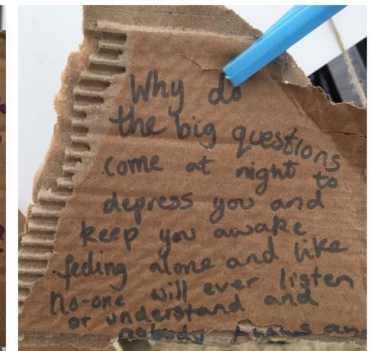 Why do
the big questions
come at night to
depress you and
keep you awake
feeling alone and like
No-one will ever listen
or understand and
nobody knows any